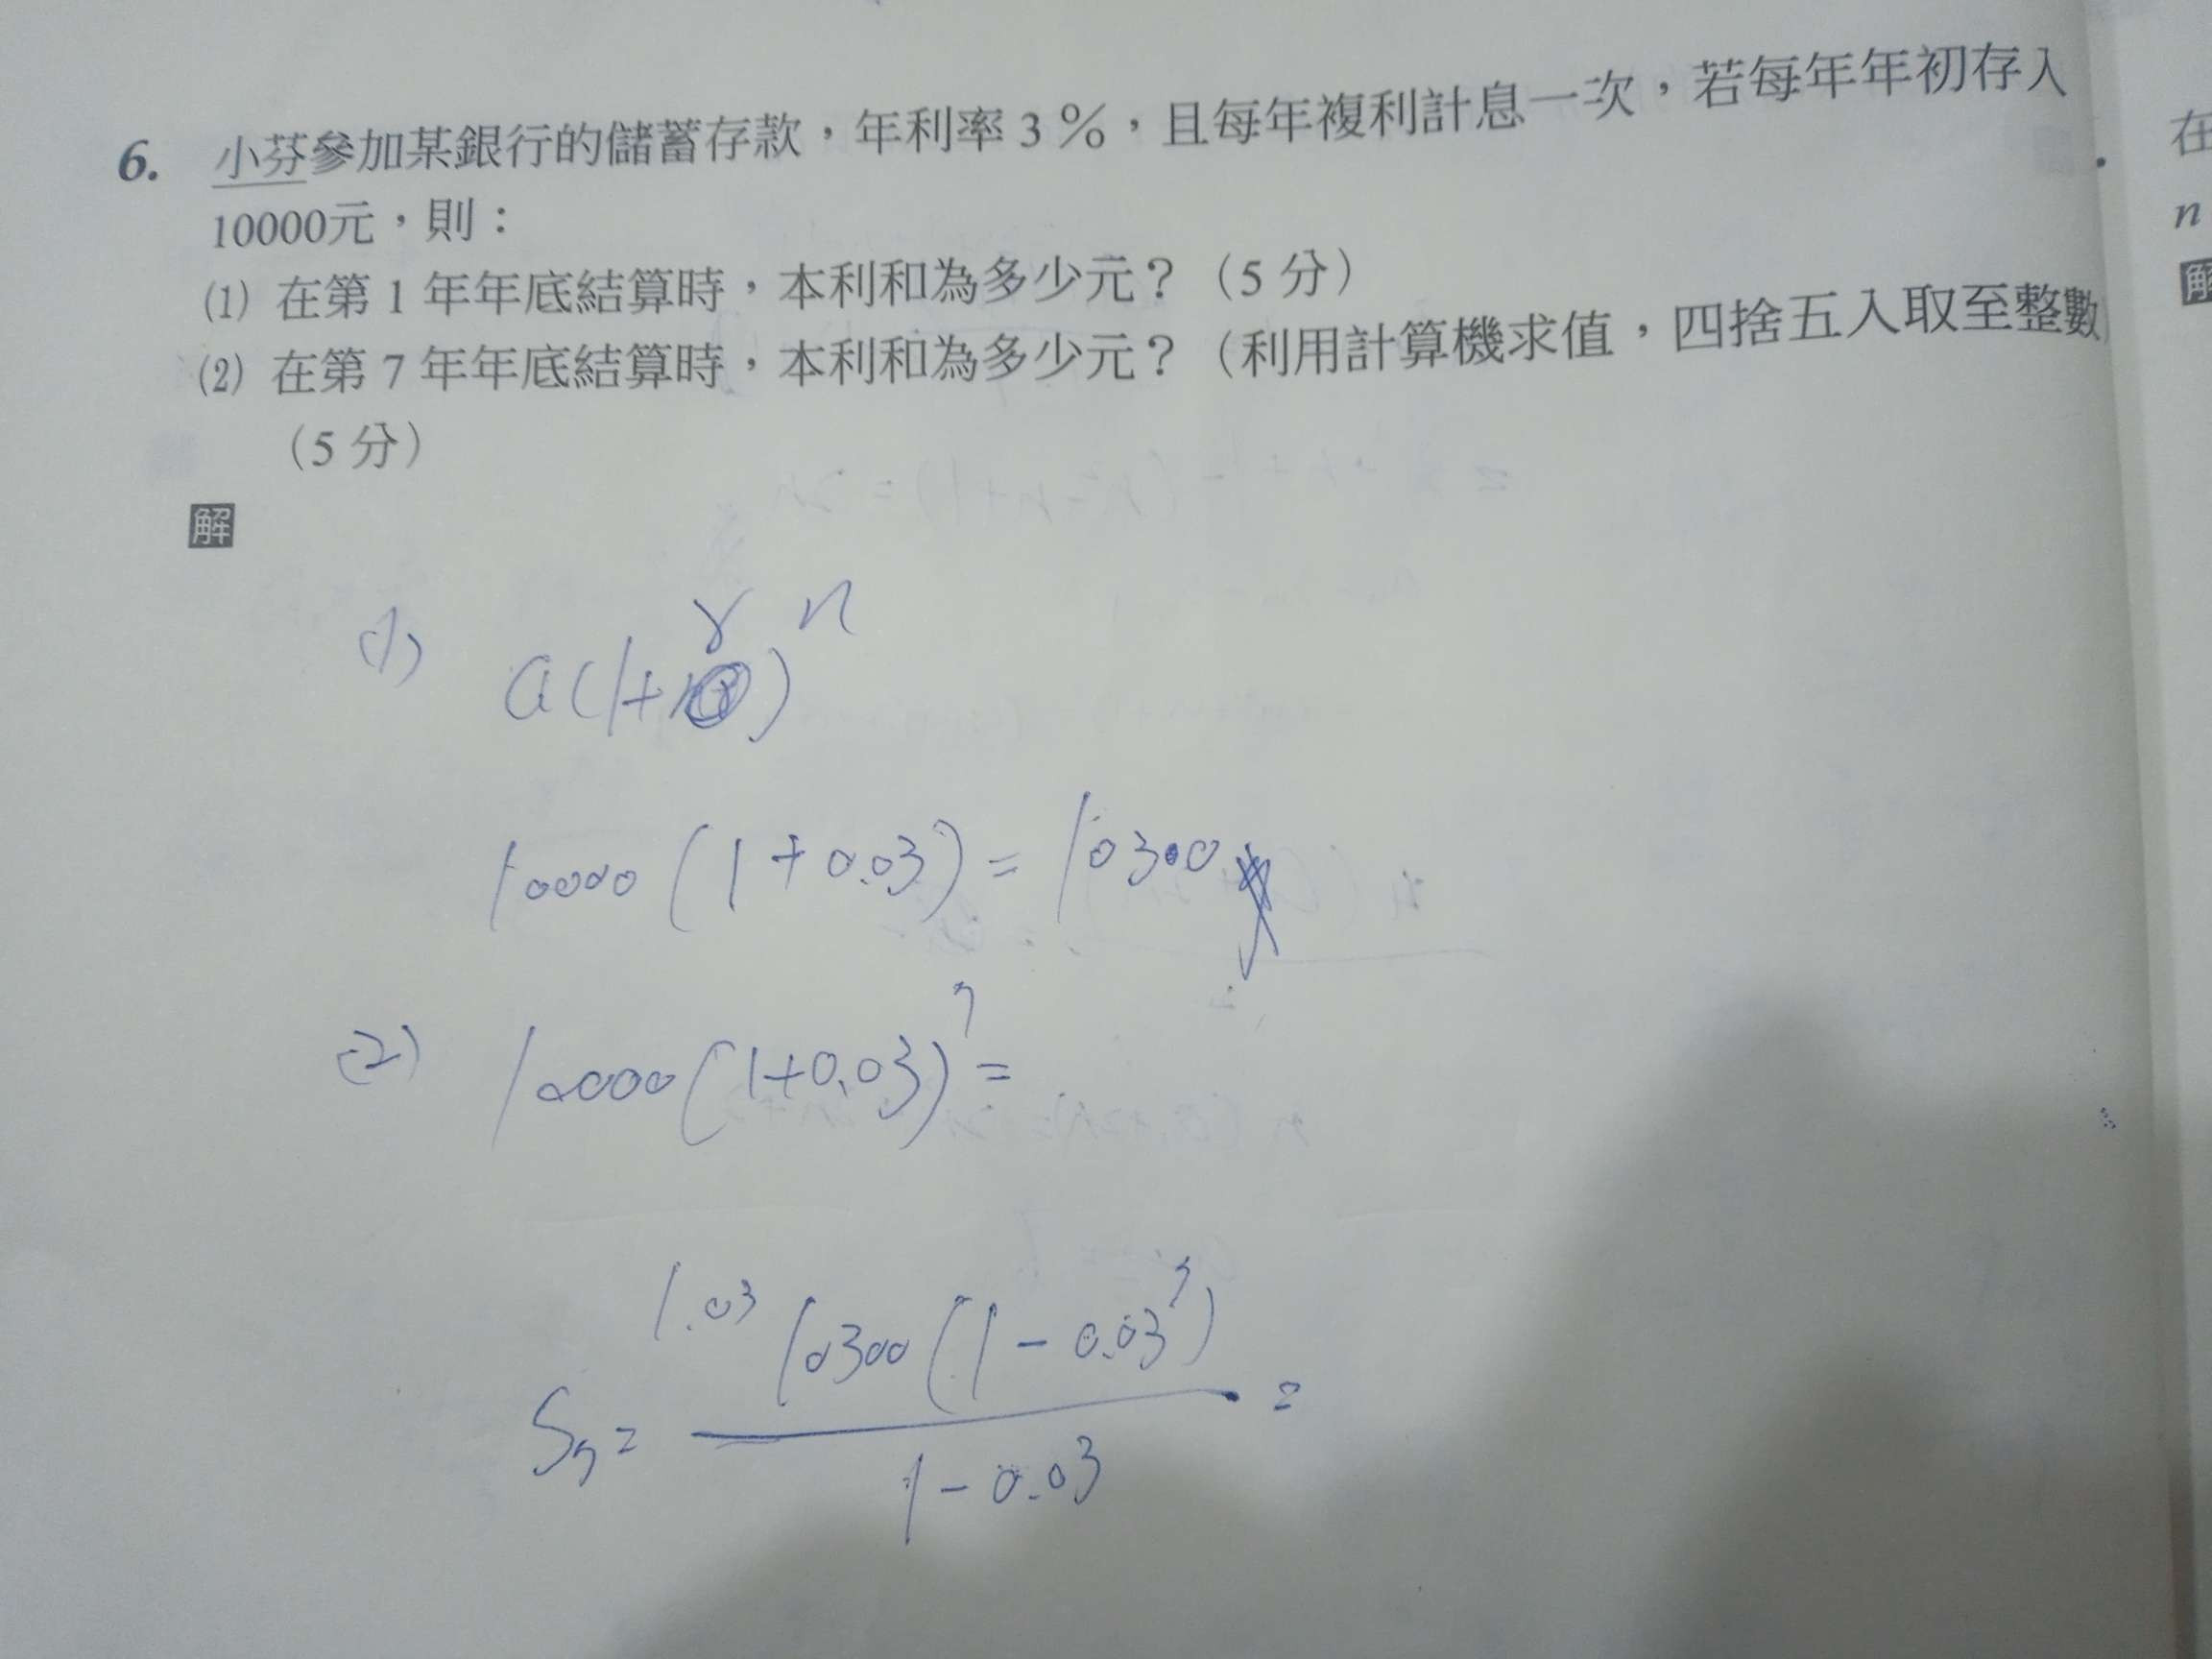 6. 小芬參加某銀行的儲蓄存款，年利率3％，且每年複利計息一次，若每年年初存入
10000元，則：
(1) 在第1年年底結算時，本利和為多少元？（5分）
(2) 在第7年年底結算時，本利和為多少元？（利用計算機求值，四捨五入取至整數
（5分）
解
(1) a(1+r)^n
10000(1+0.03)=10300
(2) 10000(1+0.03)^7=
1.03
10300(1-0.03^7)
S7= =
1-0.03
在
n
解